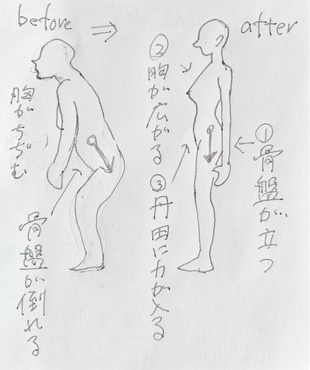 before ⇒ after
胸がちぢむ
骨盤が倒れる
①骨盤が立つ
②胸が広がる
③丹田に力が入る